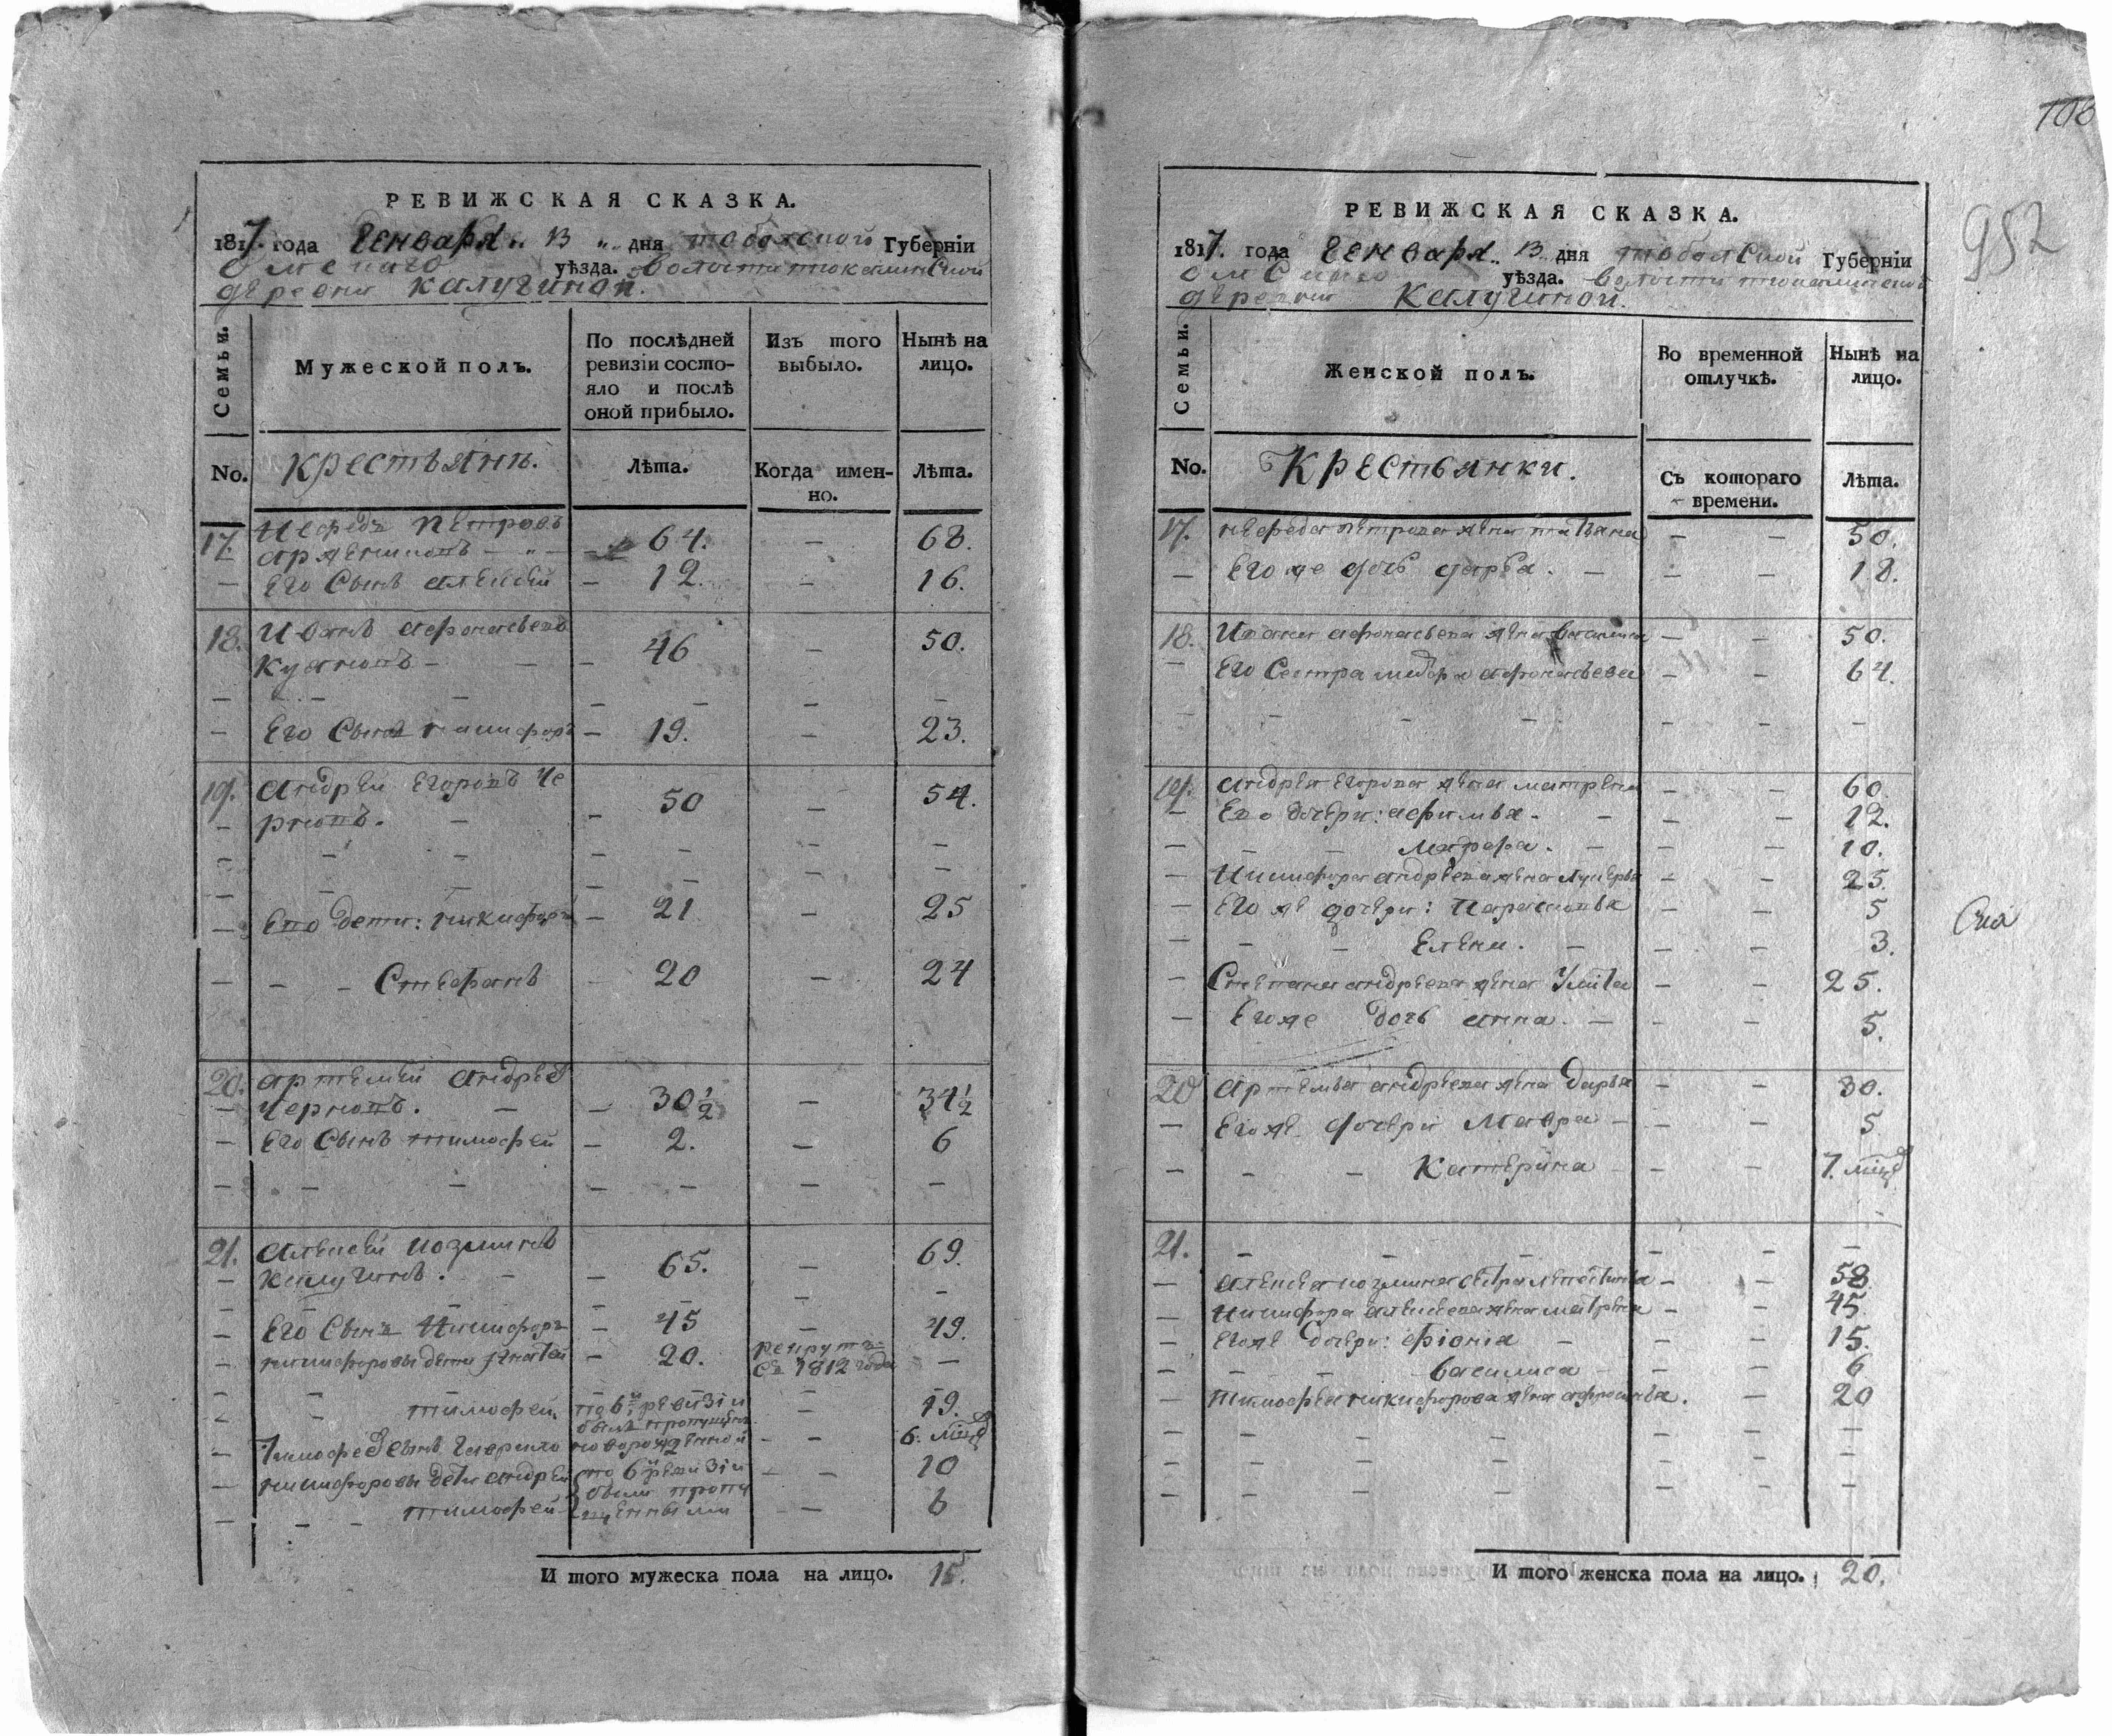 РЕВИЖСКАЯ СКАЗКА.
1817. года Генваря 13 дня тобольской Губернїи
Омскаго уѣзда. волости тюкалинской
деревни Калугиной.
Семьи.
Мужеской полъ.
По послѣдней
ревизїи состо-
яло и послѣ
оной прибыло.
Изъ того
выбыло.
Нынѣ на
лицо.
No.
Крестьянъ.
Лѣта.
Когда имен-
но.
Лѣта.
17. Нефедъ Петровъ
64. — 68.
— Его Сынъ алексей — 12. — 16.
18. Иванъ афонасьевъ
46 — 50.
— Его Сынъ никифоръ — 19. — 23.
19. андрей Егоровъ Че
рновъ. — 50 — 54.
— Его дети: никифоръ — 21 — 25
— — — Стефанъ 20 — 24
20. артемей андреевъ
Черновъ. — 30½ — 34½
— Его Сынъ тимофей — 2. — 6
21. алексей козминъ
Калугинъ. — 65. — 69.
— Его Сынъ Никифоръ — 45 — 49.
— никифоровы дети игнатей — 20. рекрутъ
съ 1812 года —
тимофей. по 6й ревизіи — 19.
былъ пропущенъ
— Тимофея сынъ гаврило новорожденной — — 6. мсцъ
— никифоровы дети андрей по 6й ревизіи — — 10
были пропу
— — — тимофей щенными — 6
И того мужеска пола на лицо. 15.
106
952
РЕВИЖСКАЯ СКАЗКА.
1817. года Генваря 13 дня тобольской Губернїи
Омскаго уѣзда. волости тюкалинской
деревни Калугиной.
Семьи.
Женской полъ.
Во временной
отлучкѣ.
Нынѣ на
лицо.
No.
Крестьянки.
Съ котораго
времени.
Лѣта.
17. нефеда петрова жена татьяна — — 50.
— Его же дочь дарья. — — — 18.
18. Ивана афонасьева жена — — 50.
— Его Сестра афонасьева — — 64.
19. андрея егорова жена матрена — — 60.
— Его дочери: афимья — — — 12.
— — — Марфа. — — — 10.
— Никифора андреева жена лукерья — — 25.
— Его же дочери: Парасковья — — 5
— — — Елена. — — — 3.
— Степана андреева жена — — 25.
— Его же дочь анна. — — — 5.
20 артемья андреева жена Дарья — — 30.
— Его же дочери Мавра — — — 5
— — — Катерина — — 7. мсцъ
21. — — — — — —
— алексея козмина сестра — — 58.
— Никифора алексеева жена матрена — — 45.
— Его же дочери: фіония — — — 15.
— — — василиса — — — 6
— тимофея никифорова жена афросинья. — 20
И того женска пола на лицо. 20.